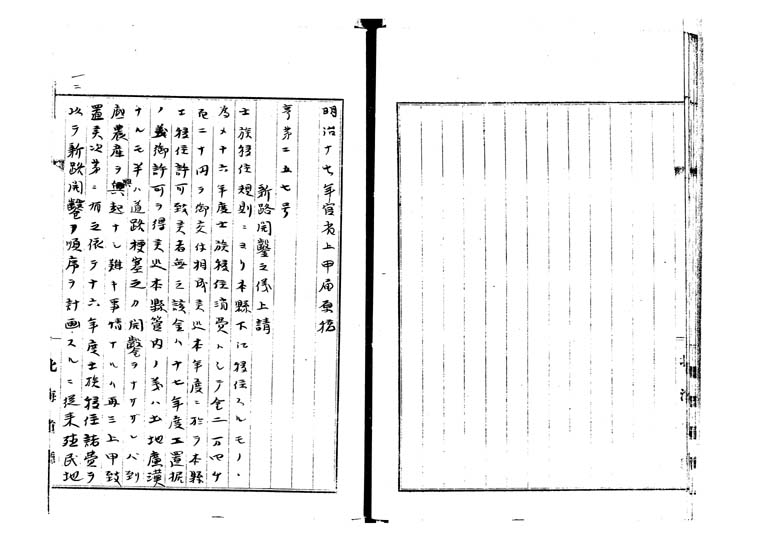 明治十七年官省上申
亨第二五七号
新路開鑿之儀上請
士族移住規則ニヨリ本縣下ニ移住スルモノヽ
為メ十六年度士族移住費トシテ金二万四千
二十円ヲ御交付相成候処本年度ニ於テ本縣
ニ移住許可致候者無之該金ハ十七年度ニ置据
ノ義御許可ヲ得候処本縣管内ノ義ハ土地廣漠
ナルモ道路梗塞之カ開鑿ヲナサザレハ到
底農産ヲ興起ナシ難キ事情ナルハ再三上申致
置候次第ニ有之依テ十六年度士族移住諸費ヲ
以テ新路開鑿ノ順序ヲ計画スルニ従来殖民地